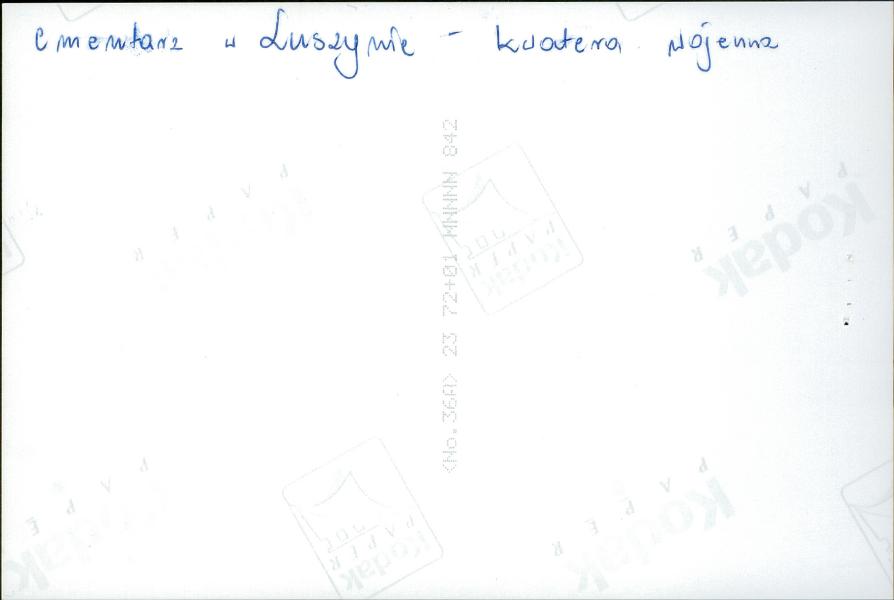 Cmentarz w Luszynie - kwatera wojenna
<No.36A> 23 72+01 MNNNN 842
Kodak
PAPER
Kodak
PAPIER
Kodak
PAPER
Kodak
PAPER
Kodak
PAPIER
Kodak
PAPER